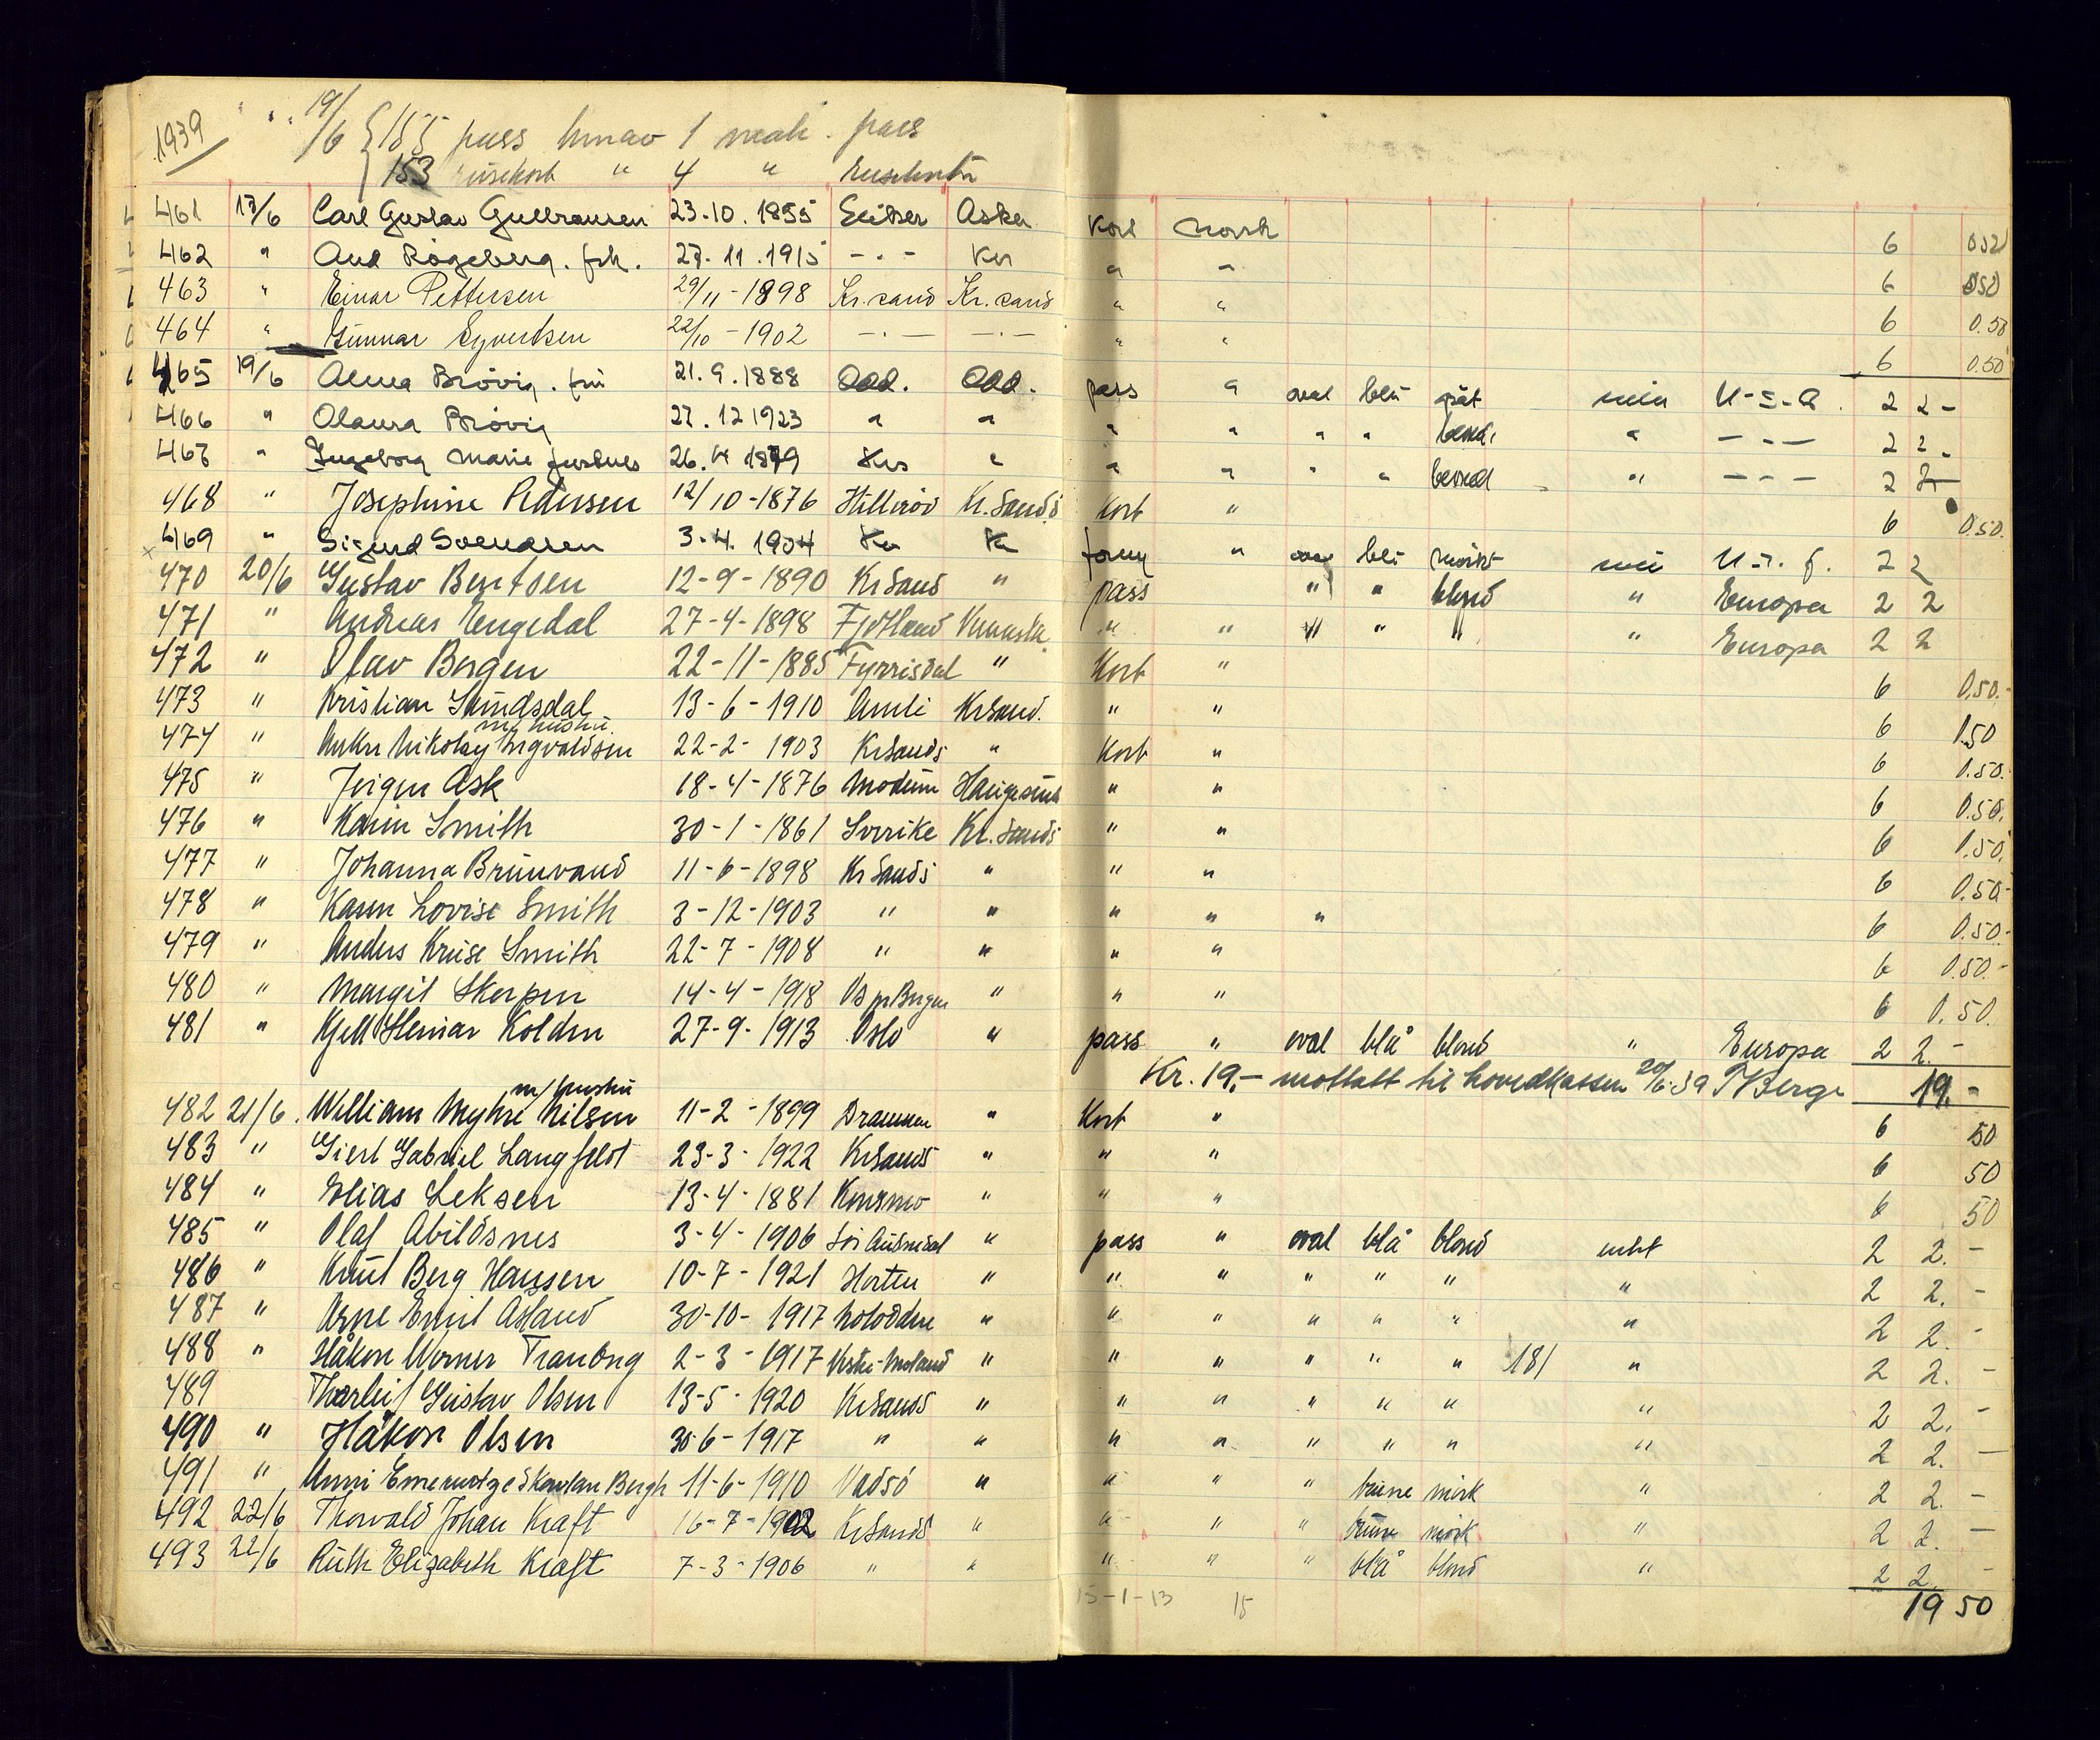 1939 " " 19/6 { 155 pass hvorav 1 pass
153 reisekort " 4 "
461 17/6 Carl Gustav Gulbransen 23.10.1855 Asker Kort norsk 6 0.50
462 " Aud Rögeberg. frk. 27.11.1915 - " - Krs " " 6 0.50
463 " Einar Pettersen 29/11-1898 Kr.sand Kr.sand " " 6 0.50
464 " Gunnar Syvertsen 22/10-1902 - " - - " - " " 6 0.50
465 19/6 Alma Brövig. fru 21.9.1888 Odd. Odd. pass " oval blå gråt U-S-A. 2 2-
466 " Olaura Brövig 27.12 1923 " " " " " " " - " - 2 2-
467 " Ingeborg Marie 26. 4 1879 Krs " " " " " " - " - 2 2-
468 " Josephine Pedersen 12/10-1876 Hilleröd Kr.Sands Kort " 6 0.50.
469 " Sigurd Svendsen 3.4.1904 Kr Kr " oval blå mörkt 2 2
470 20/6 Gustav Berntsen 12-9-1890 KrSand " pass " " blond " Europa 2 2
471 " Andreas Engedal 27-4-1898 Fjotland " " " " " " Europa 2 2
472 " Olav Bergen 22-11-1885 Fyrrisdal " Kort " 6 0.50.-
473 " Kristian Sundsdal 13-6-1910 Amli KrSand. " " 6 0.50
m/hustru.
474 " Anker Nikolay Ingvaldsen 22-2-1903 KrSands " Kort " 6 0.50.-
475 " Jörgen Ask 18-4-1876 Modum Haugesund " " 6 0.50.
476 " Karin Smith 30-1-1861 Sverike Kr.Sands " " 6 0.50.
477 " Johanna Brunvand 11-6-1898 KrSands " " " 6 0.50-
478 " Karin Lovise Smith 3-12-1903 " " " " " 6 0.50.-
479 " Anders Kruse Smith 22-7-1908 " " " " 6 0.50.-
480 " Margit Skorpen 14-4-1918 Os pr Bergen " " " 6 0.50.
481 " Kjell Steinar Kolden 27-9-1913 Oslo " pass " oval blå blond " Europa 2 2.-
Kr. 19,- mottatt til hovedkassen 20/6-39 TBerge 19.-
m/hustru
482 21/6. William Myhre Nilsen 11-2-1899 Drammen " Kort " 6 50
483 " Giert Gabriel Langfeldt 23-3-1922 KrSands " " " 6 50
484 " Elias Leksen 13-4-1881 " " " 6 50
485 " Olaf Abildsnes 3-4-1906 Sör Audnedal " pass " oval blå blond intet 2 2.-
486 " Knut Berg Hanssen 10-7-1921 Horten " " " " " " " 2 2.-
487 " Arne Emil Asland 30-10-1917 Notodden " " " " " " " 2 2.-
488 " Håkon Werner Tranöng 2-3-1917 Vestre-Moland " " " " " " 181 " 2 2.-
489 Thorleif Gustav Olsen 13-5-1920 KrSands " " " " " " " 2 2.-
490 " Håkon Olsen 30-6-1917 " " " " " " " " 2 2.-
491 " Anni Bergh 11-6-1910 Vadsö " " " " brune mörk " 2 2.-
492 22/6 Thorvald Johan Kraft 16-7-1902 KrSands " " " " brune mörk " 2 2.-
493 22/6 Ruth Elizabeth Kraft 7-3-1906 " " " " " blå blond " 2 2.-
15-1-13 15 19 50